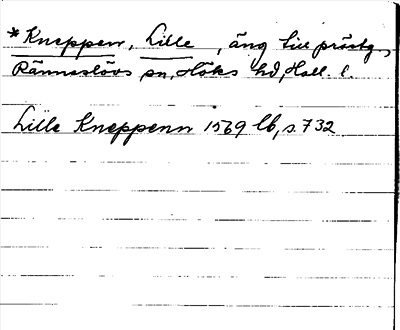 *Kneppen, Lille, äng till prästg.,
Rännaslövs sn, Höks hd, Hall. l.
Lille Kneppenn 1569 lb, s. 732